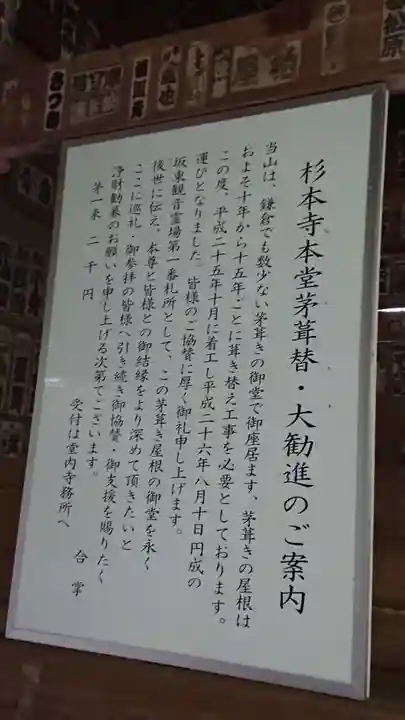 杉本寺本堂茅葺替・大勧進のご案内
当山は、鎌倉でも数少ない茅葺きの御堂で御座居ます、茅葺きの屋根は
およそ十年から十五年ごとに葺き替え工事を必要としております。
この度、平成二十五年十月に着工し平成二十六年八月十日円成の
運びとなりました。皆様のご協賛に厚く御礼申し上げます。
坂東観音霊場第一番札所として、この茅葺き屋根の御堂を永く
後世に伝え、本尊と皆様との御結縁をより深めて頂きたいと
ここに巡礼・御参拝の皆様へ引き続き御協賛・御支援を賜りたく
浄財勧募のお願いを申し上げる次第でございます。
茅一束 二千円
受付は堂内寺務所へ
合掌